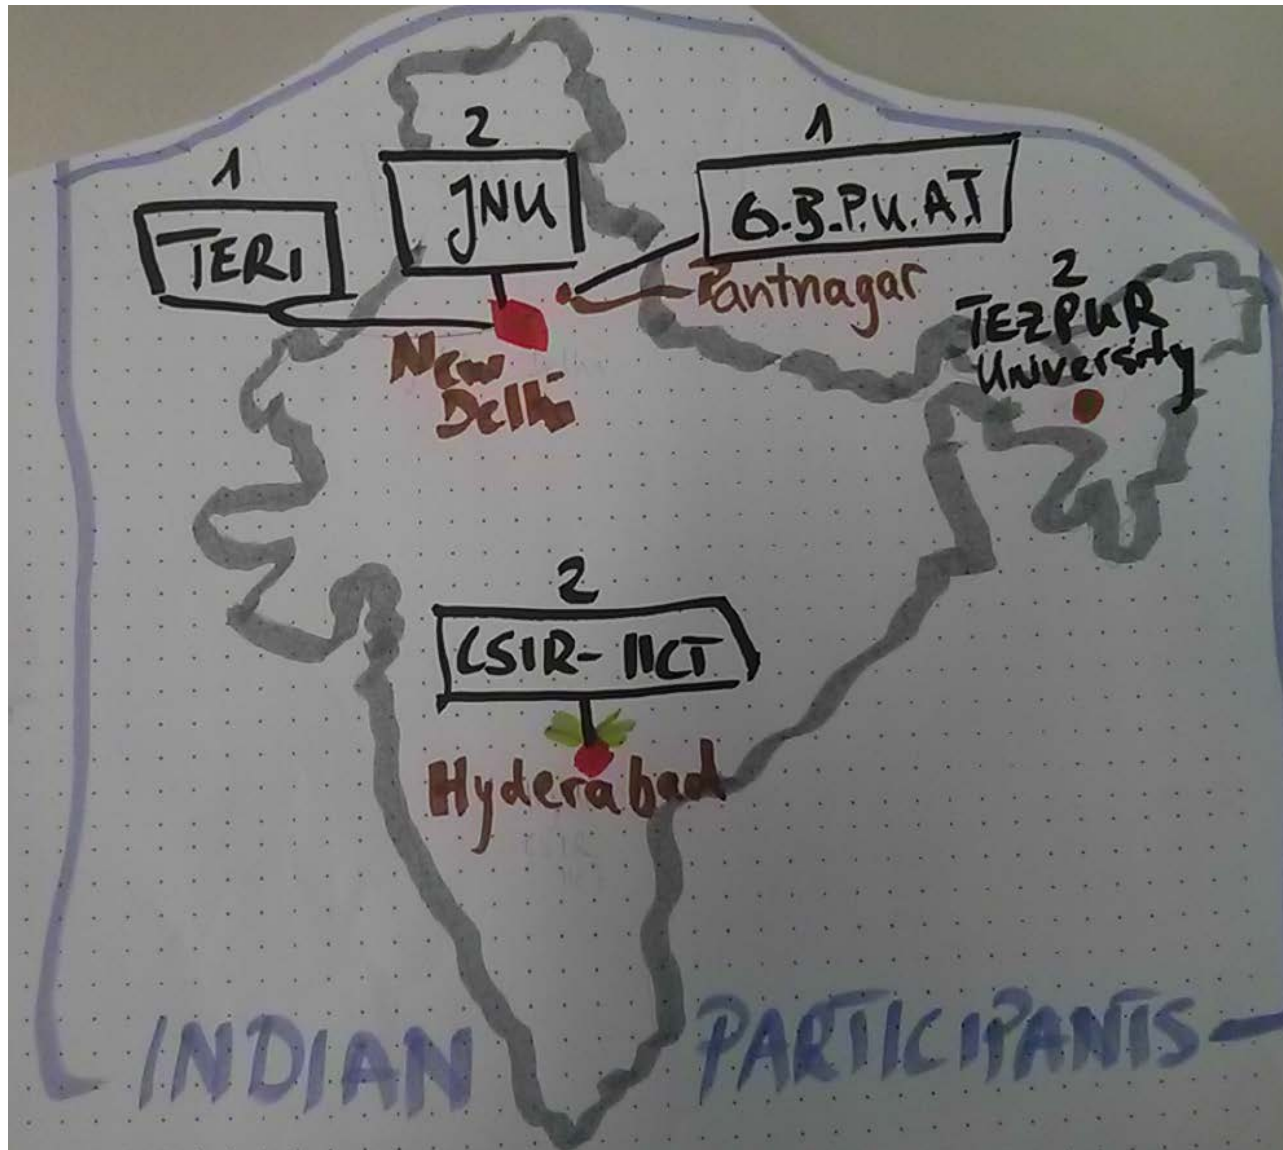 2
1
1
JNU
G.B.P.U.A.T
TERI
Pantnagar
2
TEZPUR
University
New
Delhi
2
CSIR-IICT
Hyderabad
INDIAN PARTICIPANTS